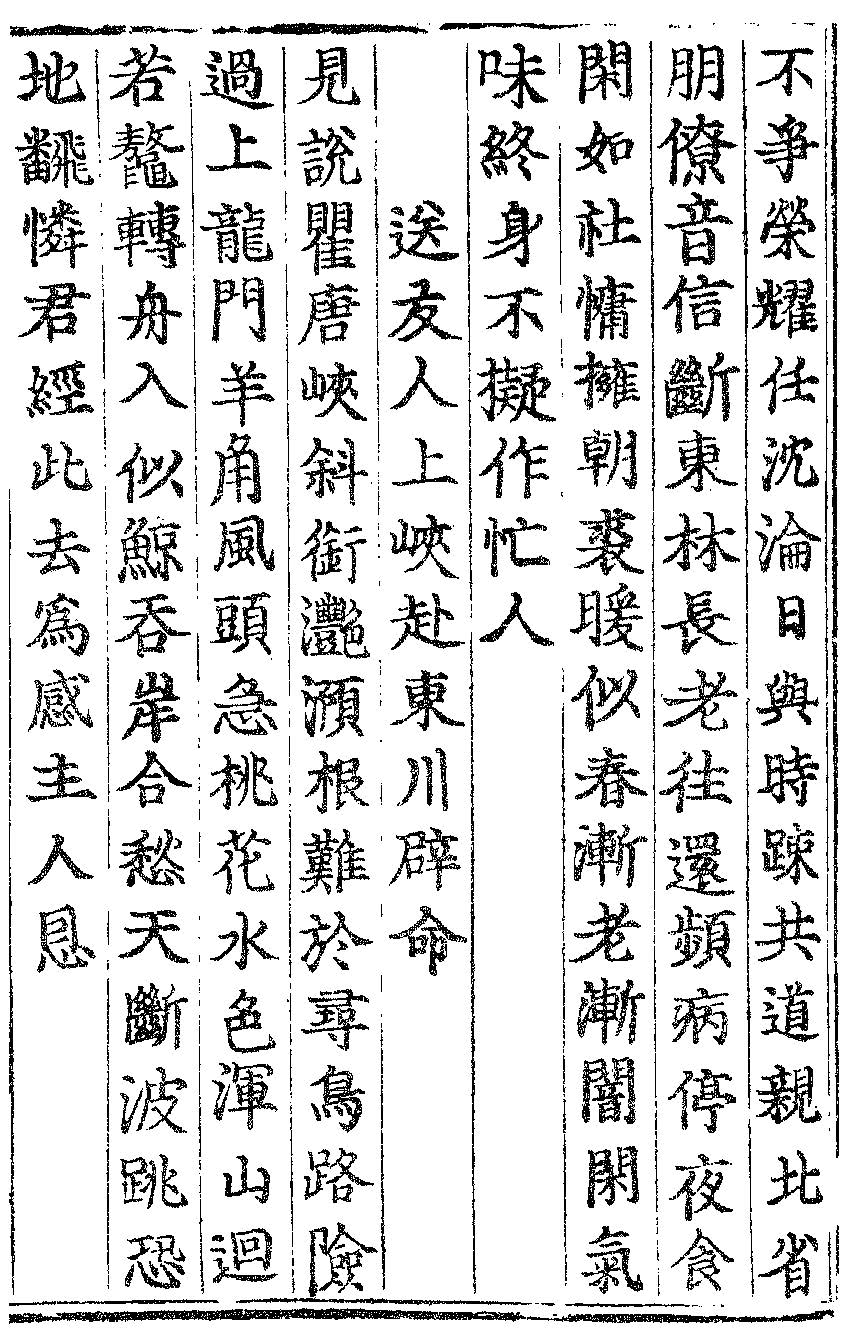 不爭榮耀任沈淪日與時踈共道親北省
朋僚音信斷東林長老往還頻病停夜食
閑如社慵擁朝裘暖似春漸老漸闇閑氣
味終身不擬作忙人
送友人上峽赴東川辟命
見說瞿唐峽斜銜灩澦根難於尋鳥路險
過上龍門羊角風頭急桃花水色渾山迴
若鼇轉舟入似鯨吞岸合愁天斷波跳恐
地飜憐君經此去爲感主人恩